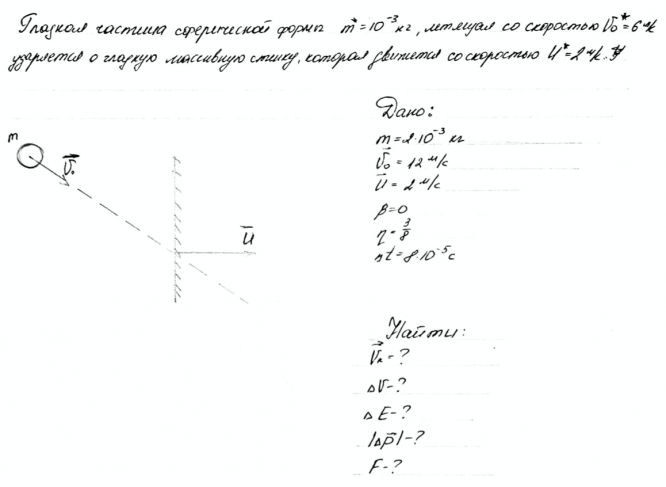 Гладкая частица сферической формы m*=10⁻³ кг, летящая со скоростью V₀*=6 м/с
ударяется о гладкую массивную стенку, которая движется со скоростью U*=2 м/с.
m
V₀
U
Дано:
m=2·10⁻³ кг
V₀=12 м/с
U=2 м/с
β=0
η=3/8
Δt=8·10⁻⁵ с
Найти:
Vₖ-?
ΔV-?
ΔE-?
|Δp|-?
F-?